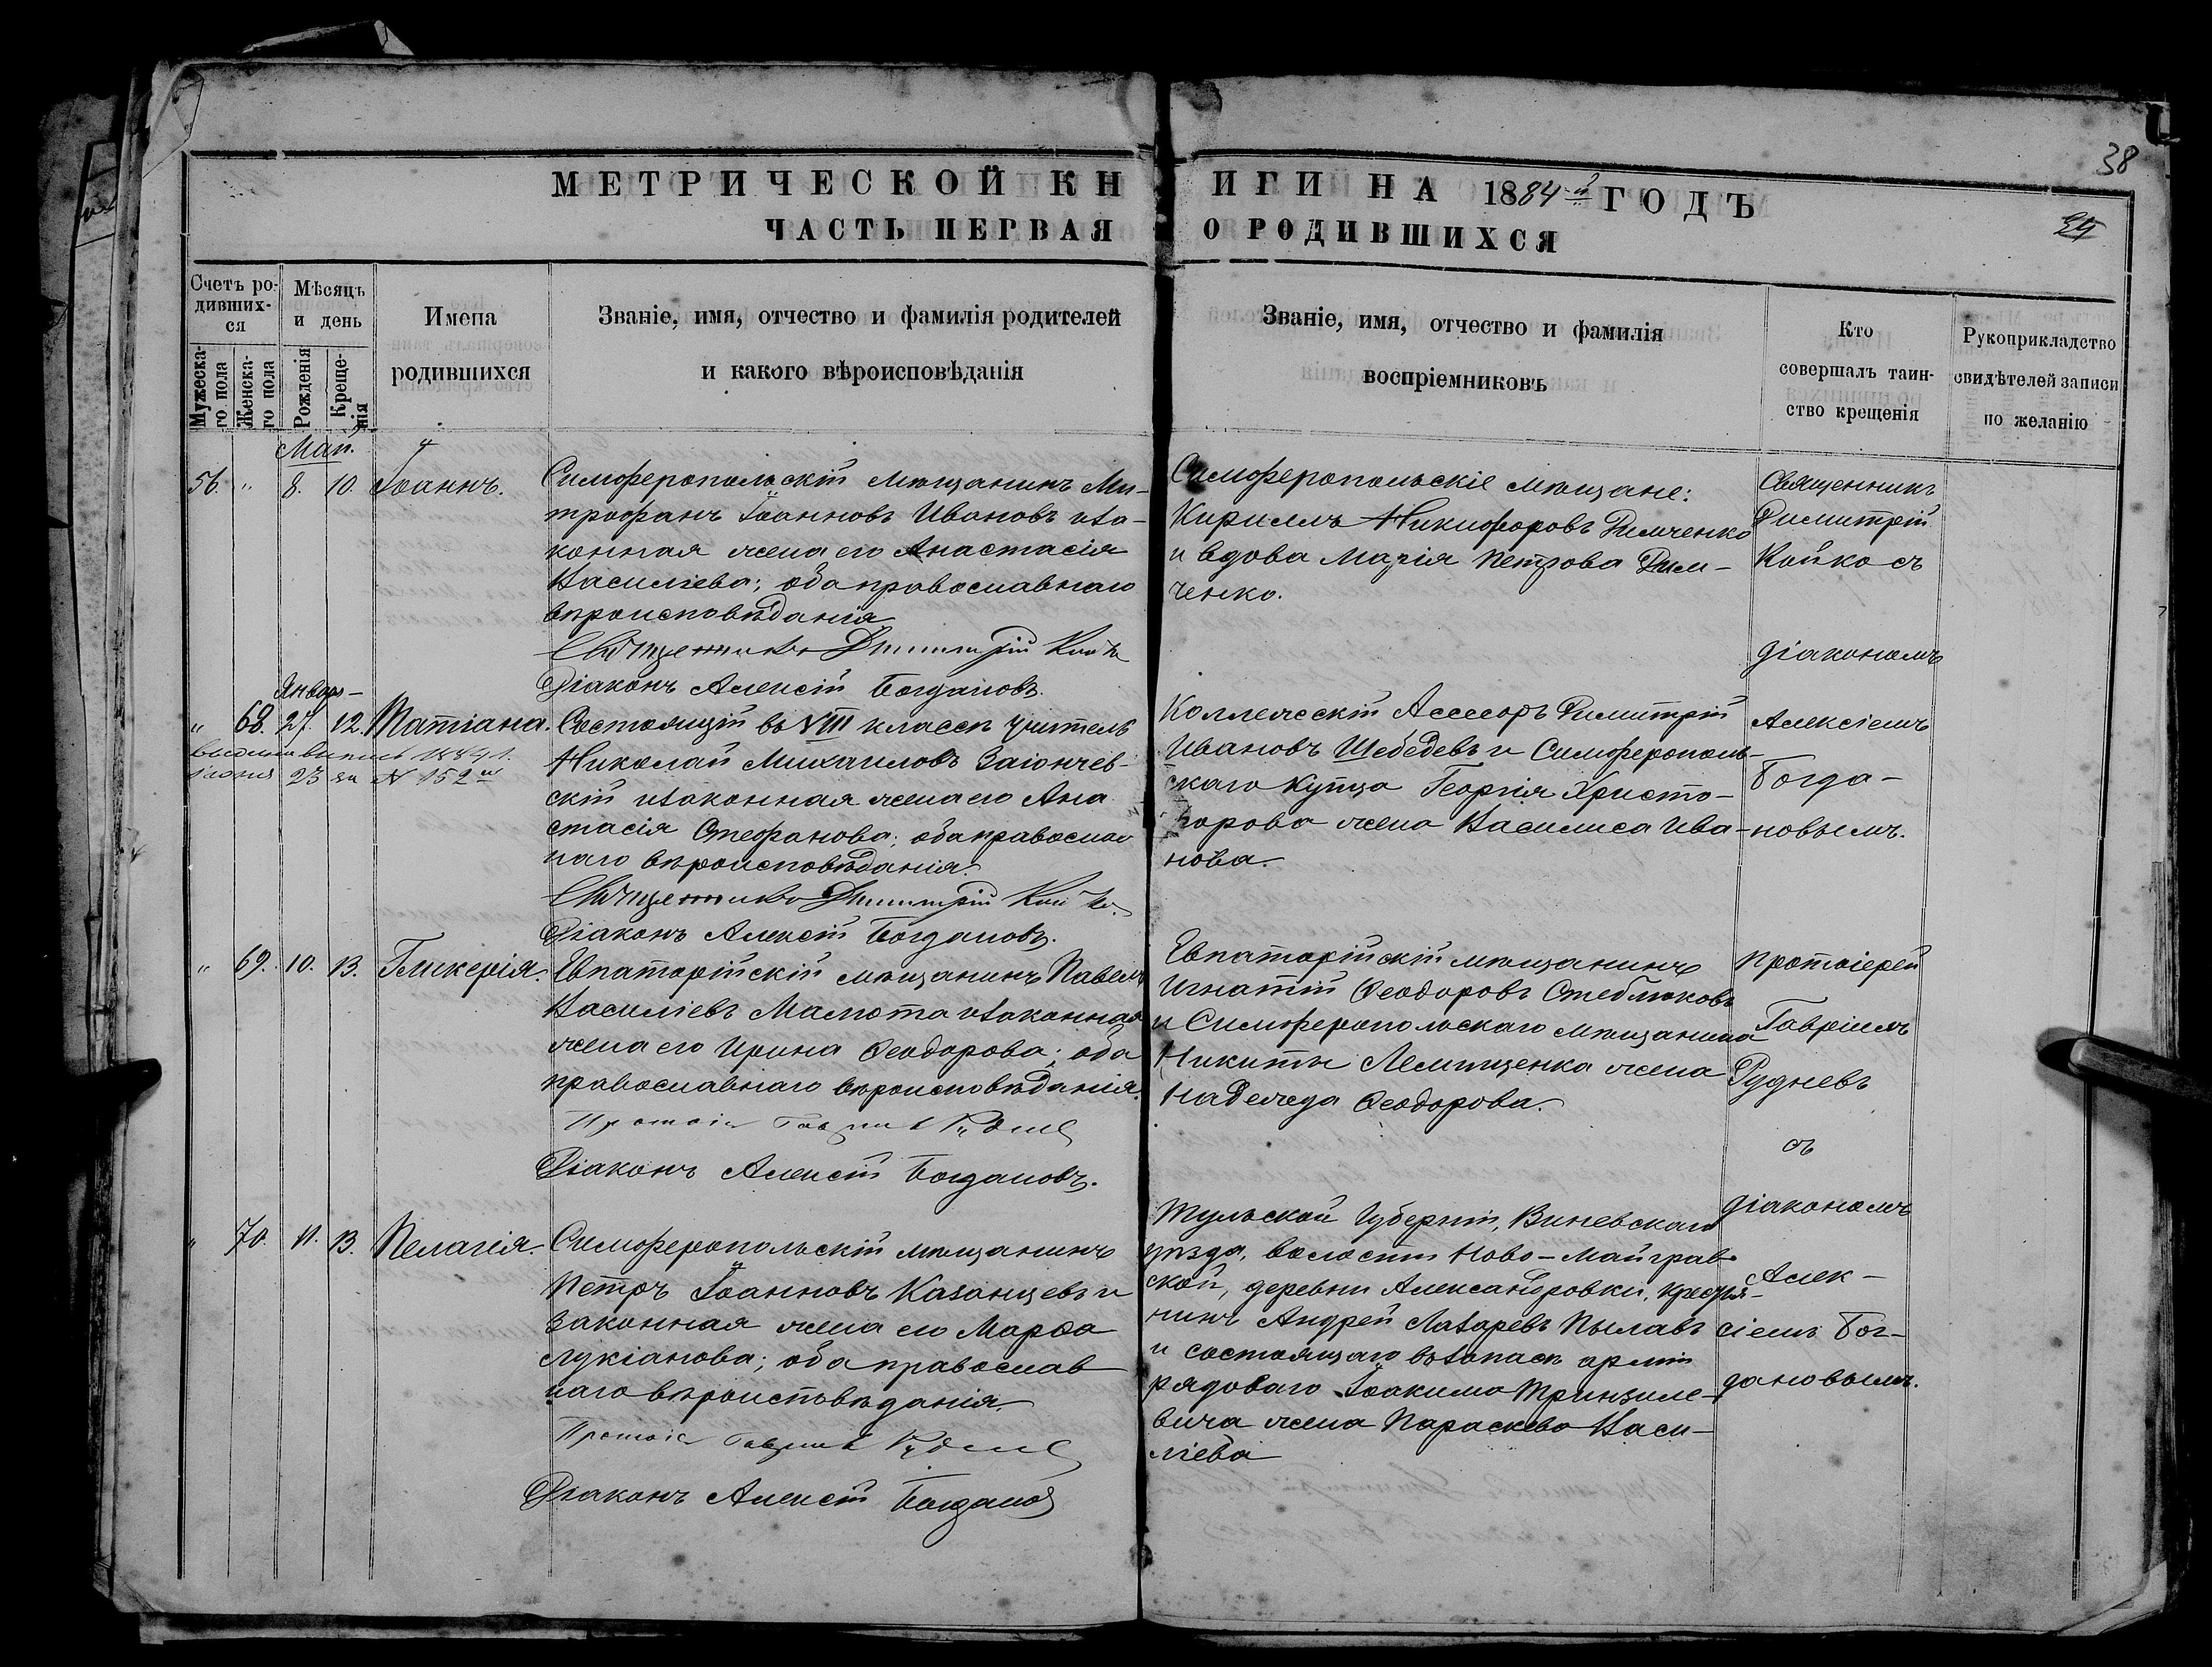 38
МЕТРИЧЕСКОЙ КНИГИ НА 1884-й ГОДЪ
ЧАСТЬ ПЕРВАЯ О РОДИВШИХСЯ
Счетъ родивших-
ся
Мужеска-
го пола
Женска-
го пола
Мѣсяцъ
и день
Рожденія
Креще-
нія
Имена
родившихся
Званіе, имя, отчество и фамилія родителей
и какого вѣроисповѣданія
Званіе, имя, отчество и фамилія
воспріемниковъ
Кто
совершалъ таин-
ство крещенія
Рукоприкладство
свидѣтелей записи
по желанію
Май.
56. " 8. 10. Іоаннъ.
Симферопольскій мѣщанинъ Ми-
трофанъ Іоанновъ Ивановъ иза-
конная жена его Анастасія
Василіева; оба православнаго
вѣроисповѣданія
Священникъ Димитрій Койко
Діаконъ Алексій Богдановъ.
Симферопольскіе мѣщане:
Кириллъ Никифоровъ Димченко
и вдова Марія Петрова Дим-
ченко.
Священникъ
Димитрій
Койко съ
діакономъ
Январ-
" 68. 27. 12. Татіана.
1884 г.
іюня 23 за N 152
Состоящій въ VIII классѣ учитель
Николай Михаиловъ Заіончев-
скій изаконная жена его Ана
стасія Стефанова; оба православ
наго вѣроисповѣданія.
Священникъ Димитрій Койко.
Діаконъ Алексій Богдановъ.
Коллежскій Асессоръ Димитрій
Ивановъ Шебедевъ и Симферополь-
скаго купца Георгія Христо-
форова жена Василиса Ива-
нова.
Алексіемъ
Богда-
новымъ.
" 69. 10. 13. Гликерія.
Евпаторійскій мѣщанинъ Павелъ
Василіевъ Мамота изаконная
жена его Ирина Ѳеодорова; оба
православнаго вѣроисповѣданія.
Діаконъ Алексій Богдановъ.
Евпаторійскій мѣщанинъ
Игнатій Ѳеодоровъ Стеблюковъ
и Симферопольскаго мѣщанина
Никиты Лемищенка жена
Надежда Ѳеодорова.
Протоіерей
Гавріилъ
Рудневъ
съ
діакономъ
" 70. 11. 13. Пелагія.
Симферопольскій мѣщанинъ
Петръ Іоанновъ Казанцевъ и
законная жена его Марѳа
Лукіанова; оба православ
наго вѣроисповѣданія.
Діаконъ Алексій Богдановъ
Тульской Губерніи, Виневскаго
уѣзда, волости Ново-Майграв
ской, деревни Александровки, крестья-
нинъ Андрей Лазаревъ Пылавъ
и состоящаго въ запасѣ арміи
рядоваго Іоакима Тринзиле-
вича жена Параскева Васи-
ліева
Алек-
сіемъ Бог-
дановымъ.